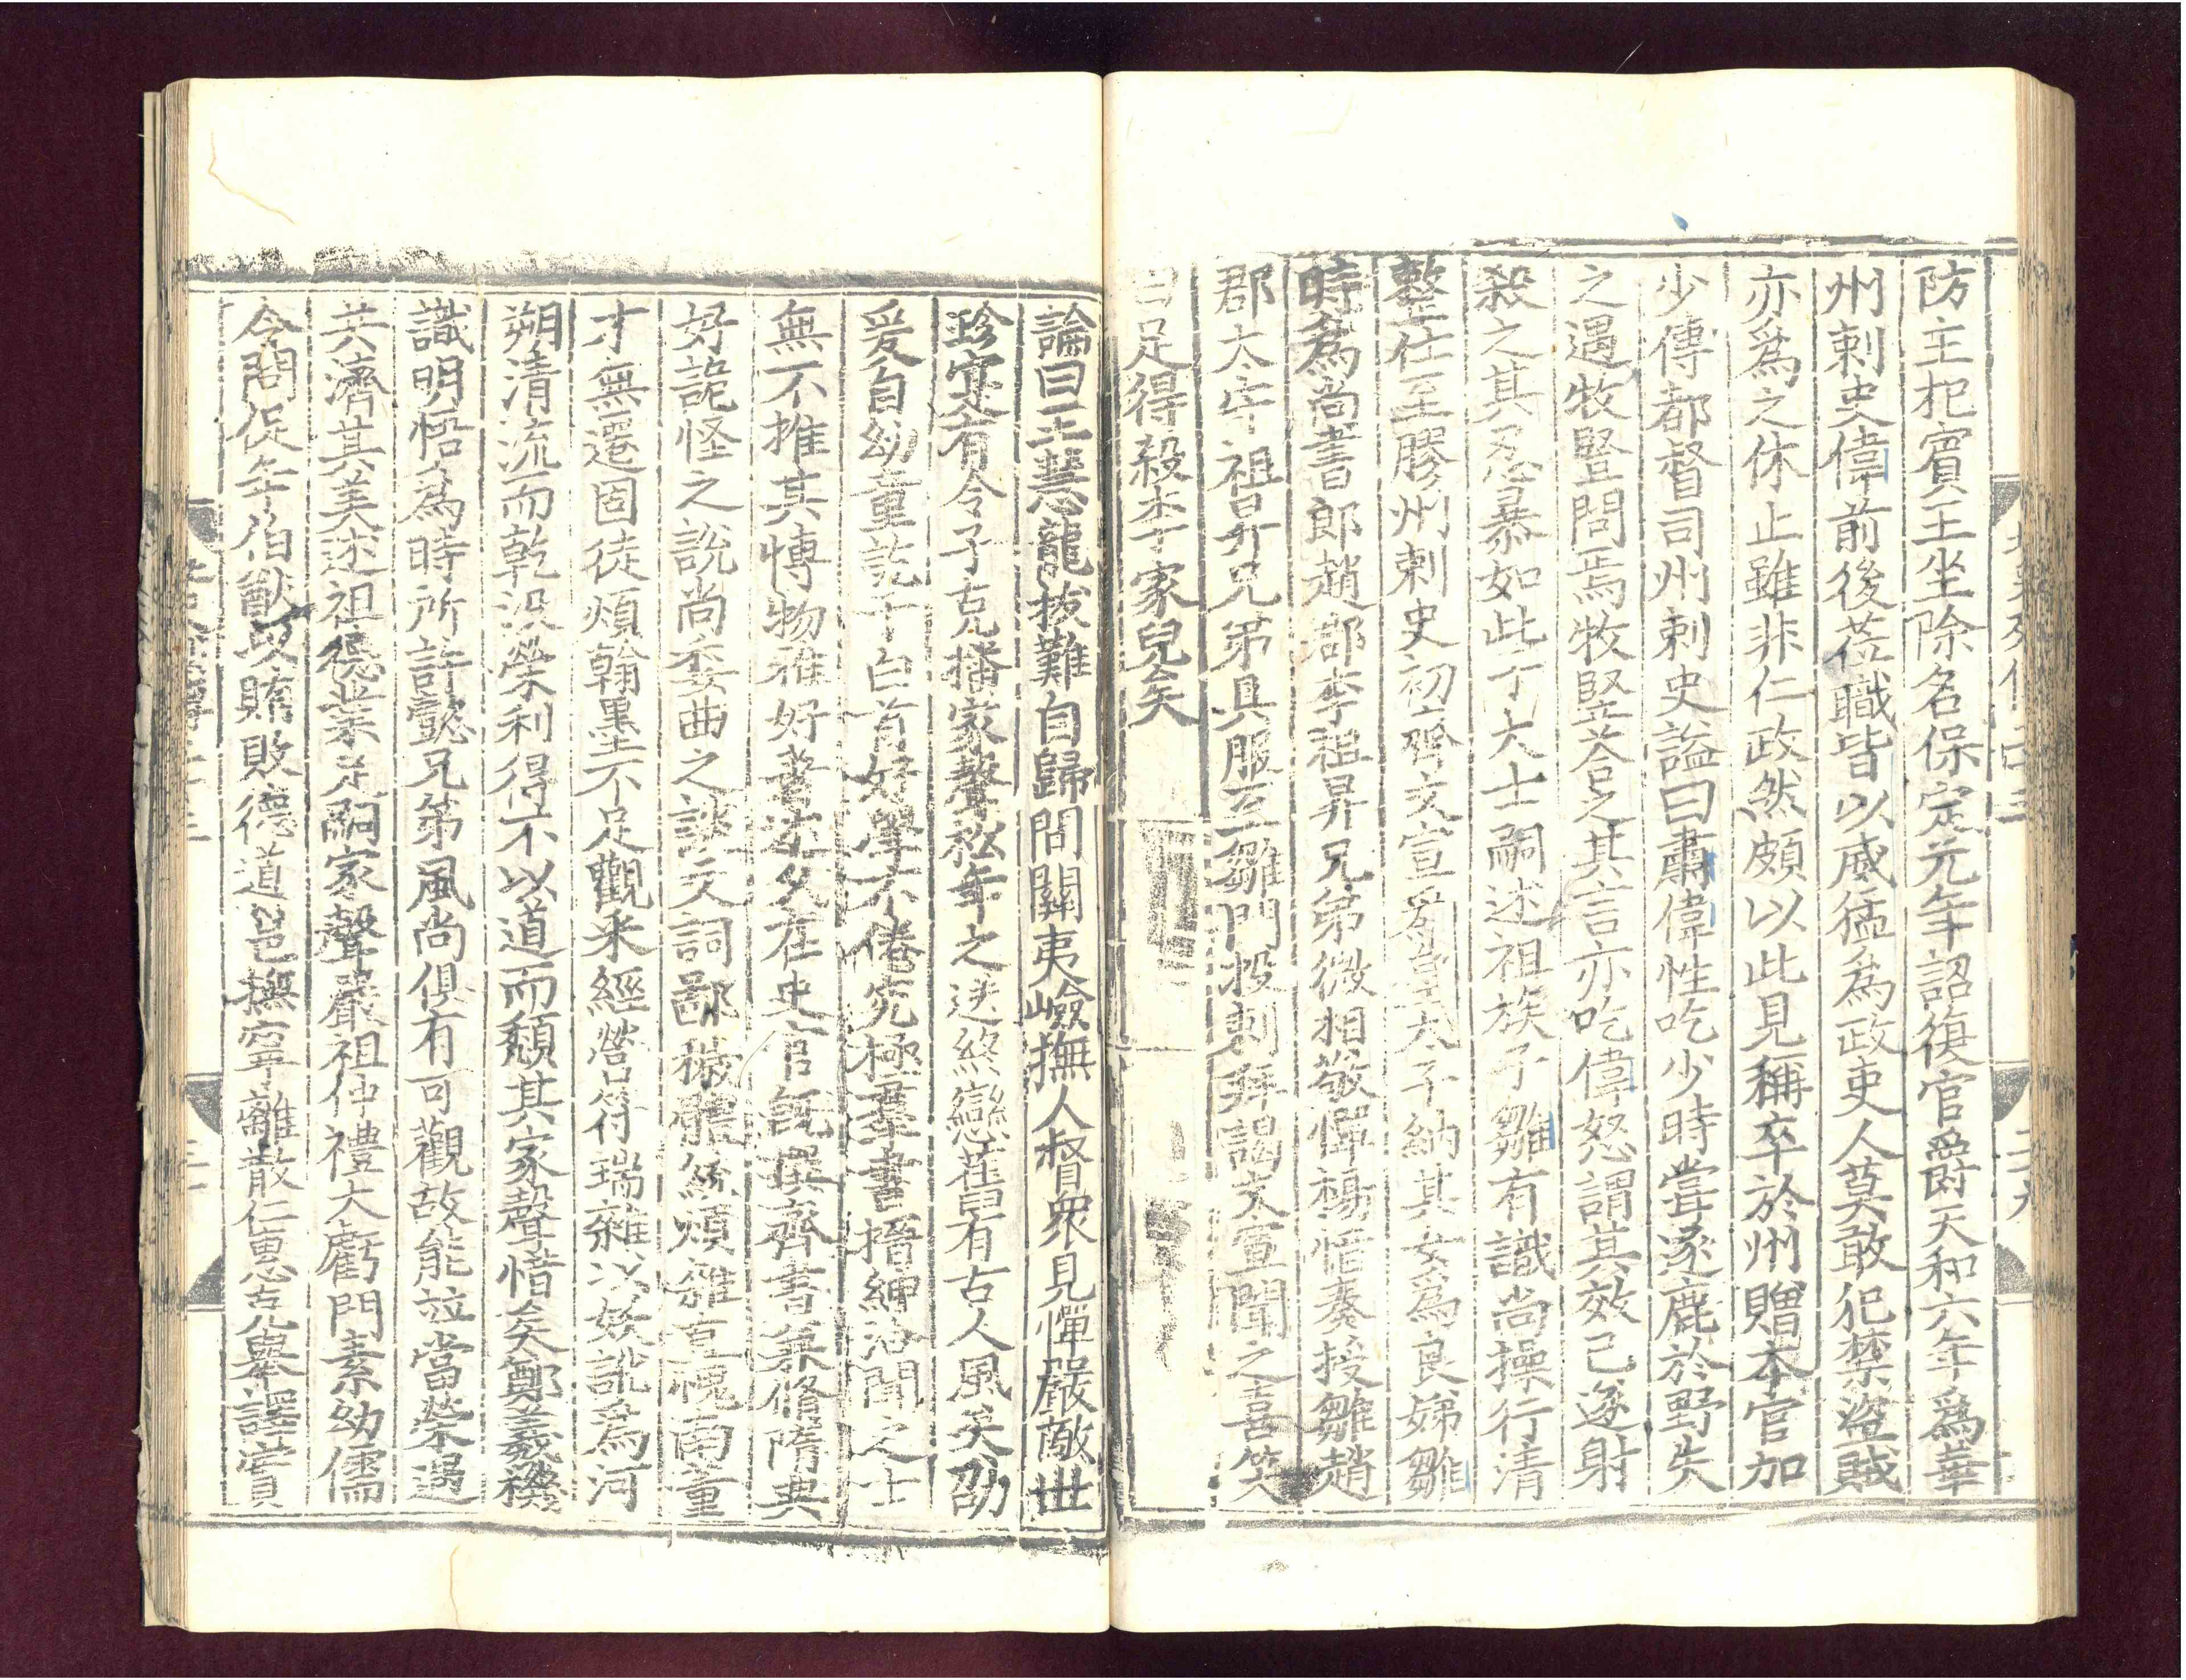 防主犯賓王坐除名保定元年詔復官爵天和六年爲華
州刺史偉前後莅職皆以威猛爲政吏人莫敢犯禁盜賊
亦爲之休止雖非仁政然頗以此見稱卒於州贈本官加
少傅都督司州刺史謚曰肅偉性吃少時嘗逐鹿於野失
之遇牧豎問焉牧豎荅之其言亦吃偉怒謂其效己遂射
殺之其忍暴如此丁大士嗣述祖族子雛有識尚操行清
整仕至膠州刺史初齊文宣爲皇太子納其女爲良娣雛
時爲尚書郎趙郡李祖昇兄弟微相敬憚楊愔奏授雛趙
郡太守祖昇兄弟具服至雛門投刺拜謁文宣聞之喜笑
曰足得殺李家兒矣
論曰王慧龍拔難自歸間關夷嶮撫人督衆見憚嚴敵世
珍寔有令子克播家聲松年之送終戀舊有古人風矣劭
爰自幼童訖于白首好學不倦究極羣書搢紳洽聞之士
無不推其博物雅好著述久在史官旣撰齊書兼脩隋典
好詭怪之說尚委曲之談文詞鄙穢體統煩雜直愧南董
才無遷固徒煩翰墨不足觀采經營符瑞雜以妖訛爲河
朔清流而乾没榮利得不以道而頹其家聲惜矣鄭羲機
識明悟爲時所許懿兄弟風尚俱有可觀故能竝當榮遇
共濟其美述祖德業足嗣家聲嚴祖仲禮大虧門素幼儒
令問促年伯猷以賄敗德道邕撫寧離散仁惠克舉譯賞